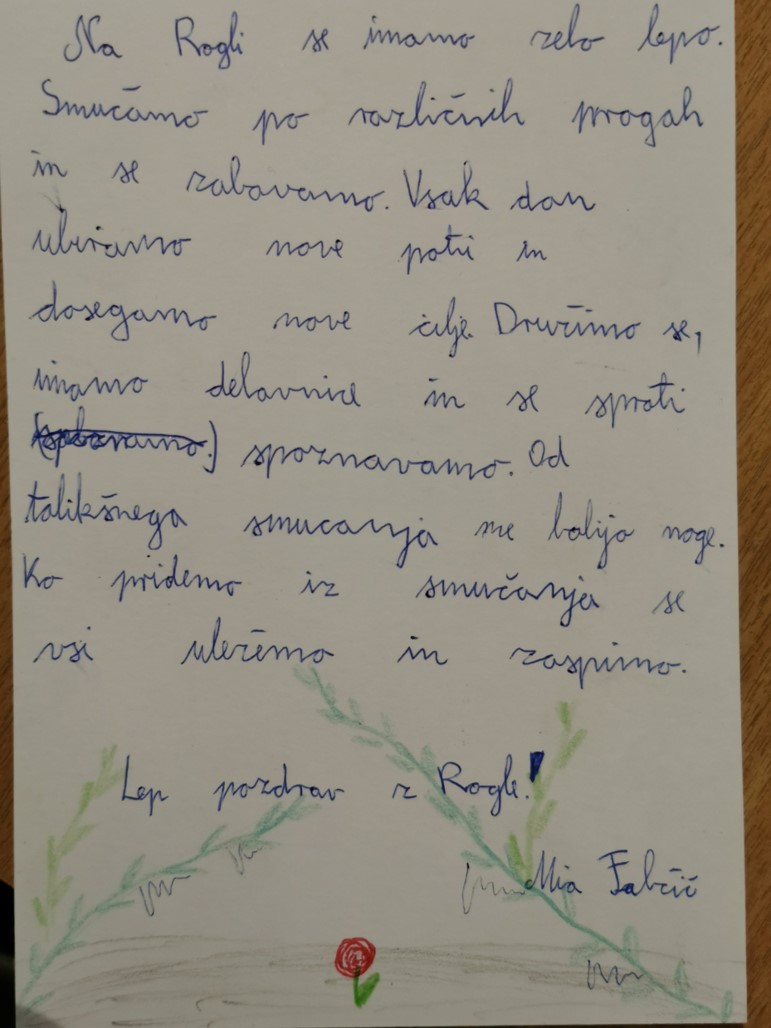 Na Rogli se imamo zelo lepo.
Smučamo po različnih progah
in se zabavamo. Vsak dan
ubiramo nove poti in
dosegamo nove cilje. Družimo se,
imamo delavnice in se sproti
spoznavamo. Od
tolikšnega smučanja me bolijo noge.
Ko pridemo iz smučanja se
vsi uležemo in zaspimo.
Lep pozdrav z Rogle!
Mia Fabčič